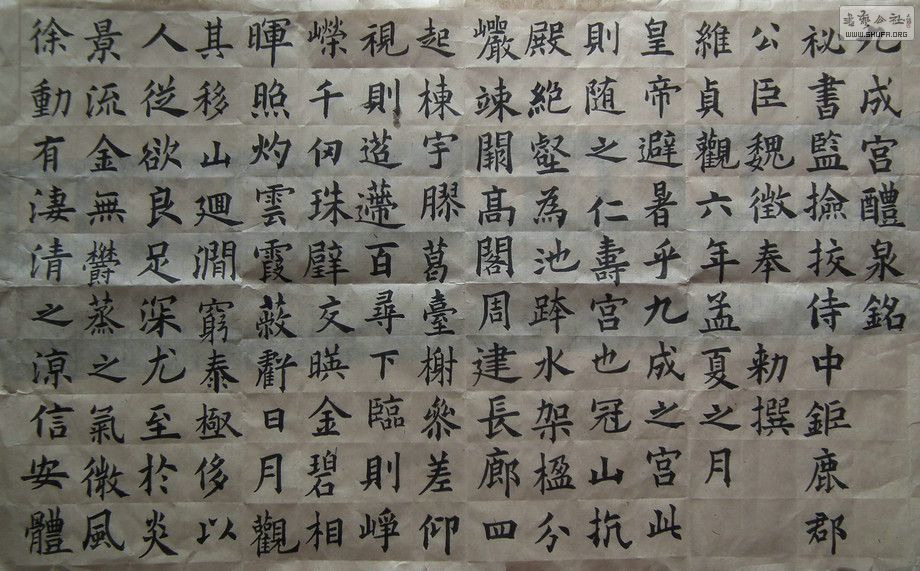 九成宮醴泉銘
秘書監撿挍侍中鉅鹿郡
公臣魏徵奉 勅撰
維貞觀六年孟夏之月
皇帝避暑乎九成之宮此
則随之仁壽宮也冠山抗
殿絶壑為池跨水架楹分
巖竦闕高閣周建長廊四
起棟宇膠葛臺榭參差仰
視則迢遰百尋下臨則崢
嶸千仞珠璧交暎金碧相
暉照灼雲霞蔽虧日月觀
其移山迴澗窮泰極侈以
人從欲良足深尤至於炎
景流金無欝蒸之氣微風
徐動有淒清之涼信安體
書藝公社
WWW.SHUFA.ORG